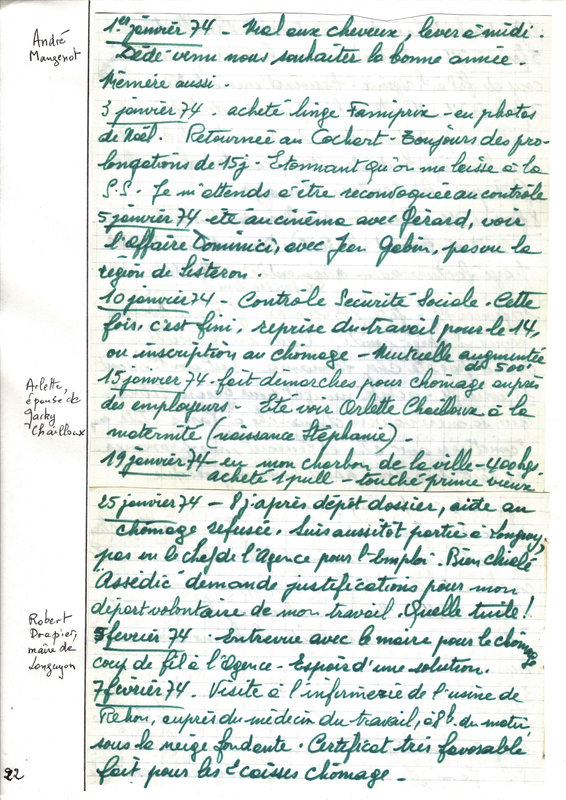 André
Mangenot
1er janvier 74 - Mal aux cheveux, lever à midi.
Dédé venu nous souhaiter la bonne année.
Mémère aussi.
3 janvier 74. acheté linge Familiprix - eu photos
de Noël. Retournée au Cochert - Toujours des pro-
longations de 15j - Etonnant qu'on me laisse à la
S.S. Je m'attends à être reconvoquée au contrôle
5 janvier 74 été au cinéma avec Gérard, voir
l'affaire Dominici, avec Jean Gabin, pas vu la
région de Sisteron.
10 janvier 74 - Contrôle Sécurité Sociale. Cette
fois, c'est fini, reprise du travail pour le 14,
ou inscription au chômage - Mutuelle augmentée
de 500f
Arlette,
épouse de
Jacky
Chailloux
15 janvier 74. fait démarches pour chomage auprès
des employeurs. Eté voir Arlette Chailloux à la
maternité (naissance Stéphanie).
19 janvier 74 - eu mon charbon de la ville - 400 kgs.
acheté 1 pull - touché prime vieux
25 janvier 74 - 8 j après dépôt dossier, aide au
chômage refusée. Suis aussitôt partie à Longwy,
pas eu le chef de l'Agence pour l'Emploi. Bien chialé
Assédic demande justifications pour mon
départ volontaire de mon travail. Quelle tuile!
Robert
Drapier,
maire de
Longuyon
5 février 74 : Entrevue avec le maire pour le chômage
coup de fil à l'Agence - Espoir d'une solution.
7 février 74. Visite à l'infirmerie de l'usine de
Rehon, auprès du médecin du travail, à 8h. du matin
sous la neige fondante. Certificat très favorable
fait pour les caisses chômage -
22